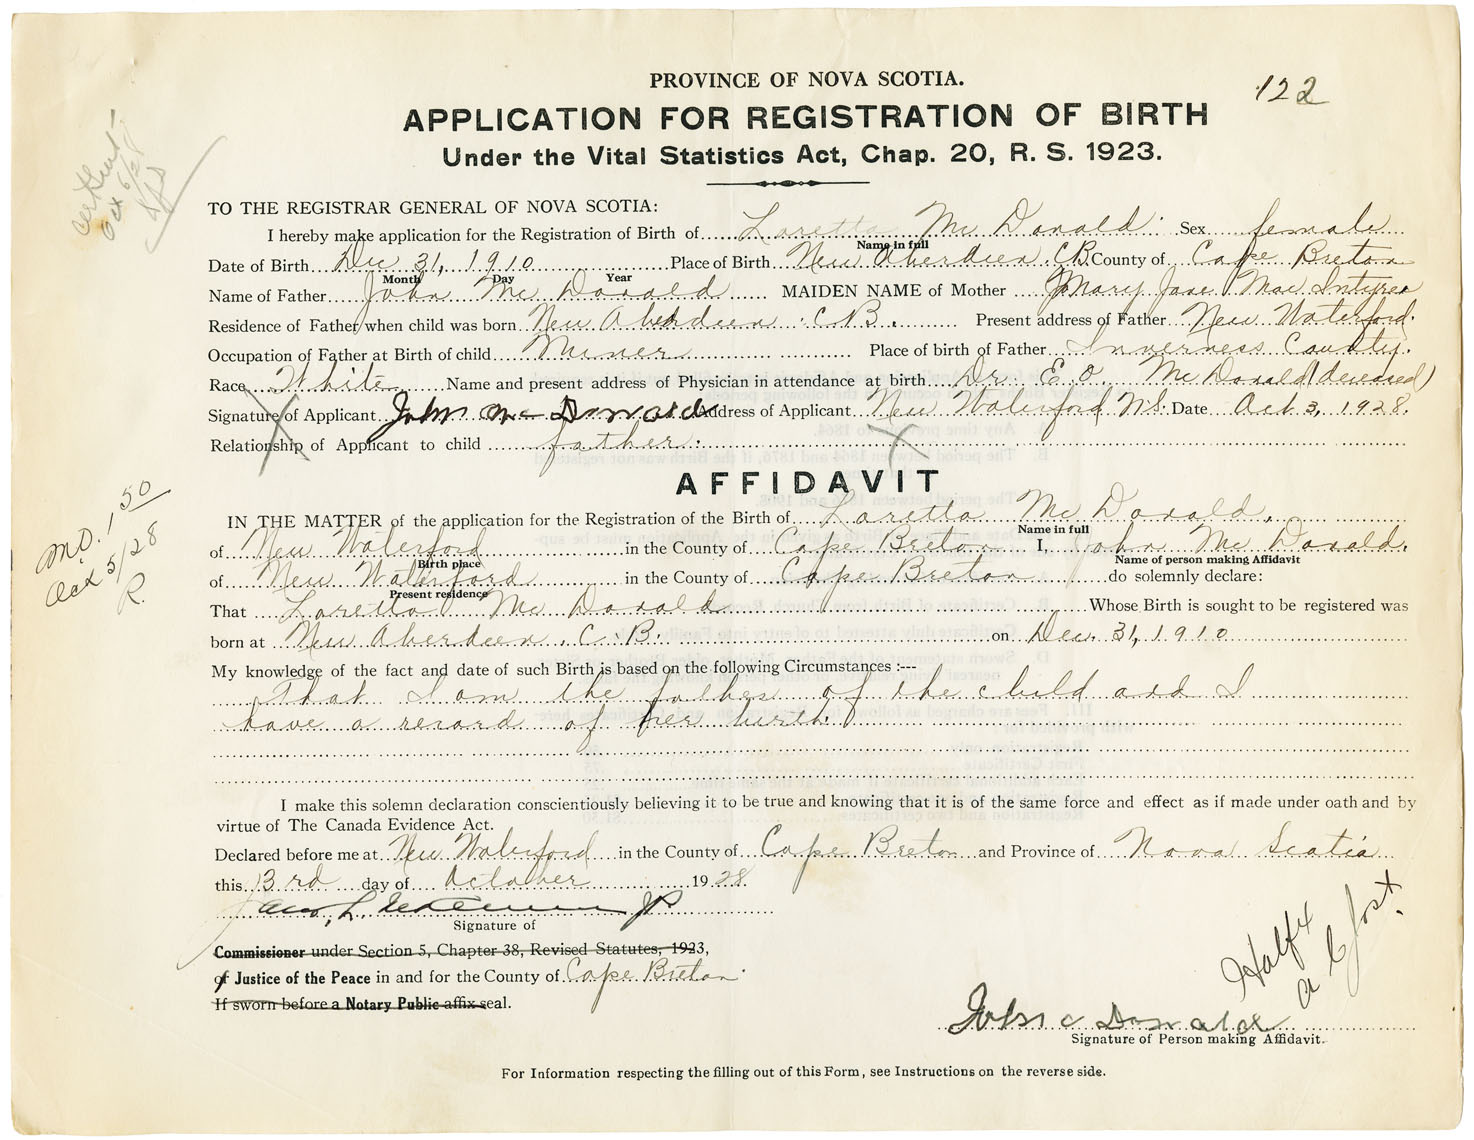 PROVINCE OF NOVA SCOTIA.
122
APPLICATION FOR REGISTRATION OF BIRTH
Under the Vital Statistics Act, Chap. 20, R. S. 1923.
Oct 6/28
TO THE REGISTRAR GENERAL OF NOVA SCOTIA:
I hereby make application for the Registration of Birth of Loretta Mc Donald Sex female
Name in full
Date of Birth Dec 31, 1910 Place of Birth New Aberdeen, C.B. County of Cape Breton
Month Day Year
Name of Father John Mc Donald MAIDEN NAME of Mother Mary Jane Mac Intyre
Residence of Father when child was born New Aberdeen C.B. Present address of Father New Waterford.
Occupation of Father at Birth of child Miner Place of birth of Father Inverness County.
Race White Name and present address of Physician in attendance at birth Dr. E. O. Mc Donald (deceased)
Signature of Applicant John Mc Donald Address of Applicant New Waterford, N.S. Date Oct 3, 1928.
Relationship of Applicant to child father.
AFFIDAVIT
M.O. 1 50
Oct 5/28
R.
IN THE MATTER of the application for the Registration of the Birth of Loretta Mc Donald.
Name in full
of New Waterford in the County of Cape Breton I, John Mc Donald.
Birth place Name of person making Affidavit
of New Waterford in the County of Cape Breton do solemnly declare:
Present residence
That Loretta Mc Donald Whose Birth is sought to be registered was
born at New Aberdeen, C. B. on Dec. 31, 1910
My knowledge of the fact and date of such Birth is based on the following Circumstances :---
That I am the father of the child and I
have a record of her birth.
I make this solemn declaration conscientiously believing it to be true and knowing that it is of the same force and effect as if made under oath and by
virtue of The Canada Evidence Act.
Declared before me at New Waterford in the County of Cape Breton and Province of Nova Scotia
this 3rd day of October 1928
J.P.
Signature of
Commissioner under Section 5, Chapter 38, Revised Statutes, 1923,
of Justice of the Peace in and for the County of Cape Breton
If sworn before a Notary Public affix seal.
Halfx
John c Donald
Signature of Person making Affidavit.
For Information respecting the filling out of this Form, see Instructions on the reverse side.